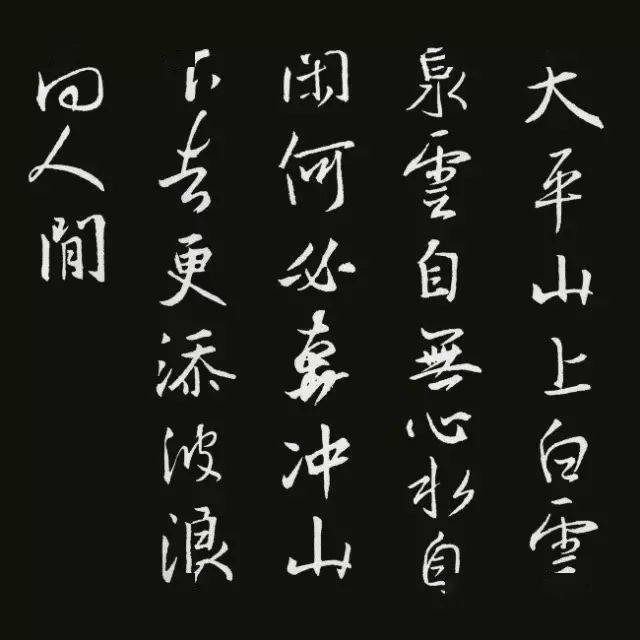 大平山上白雲
泉雲自無心水自
閑何必奔冲山
下去更添波浪
向人間